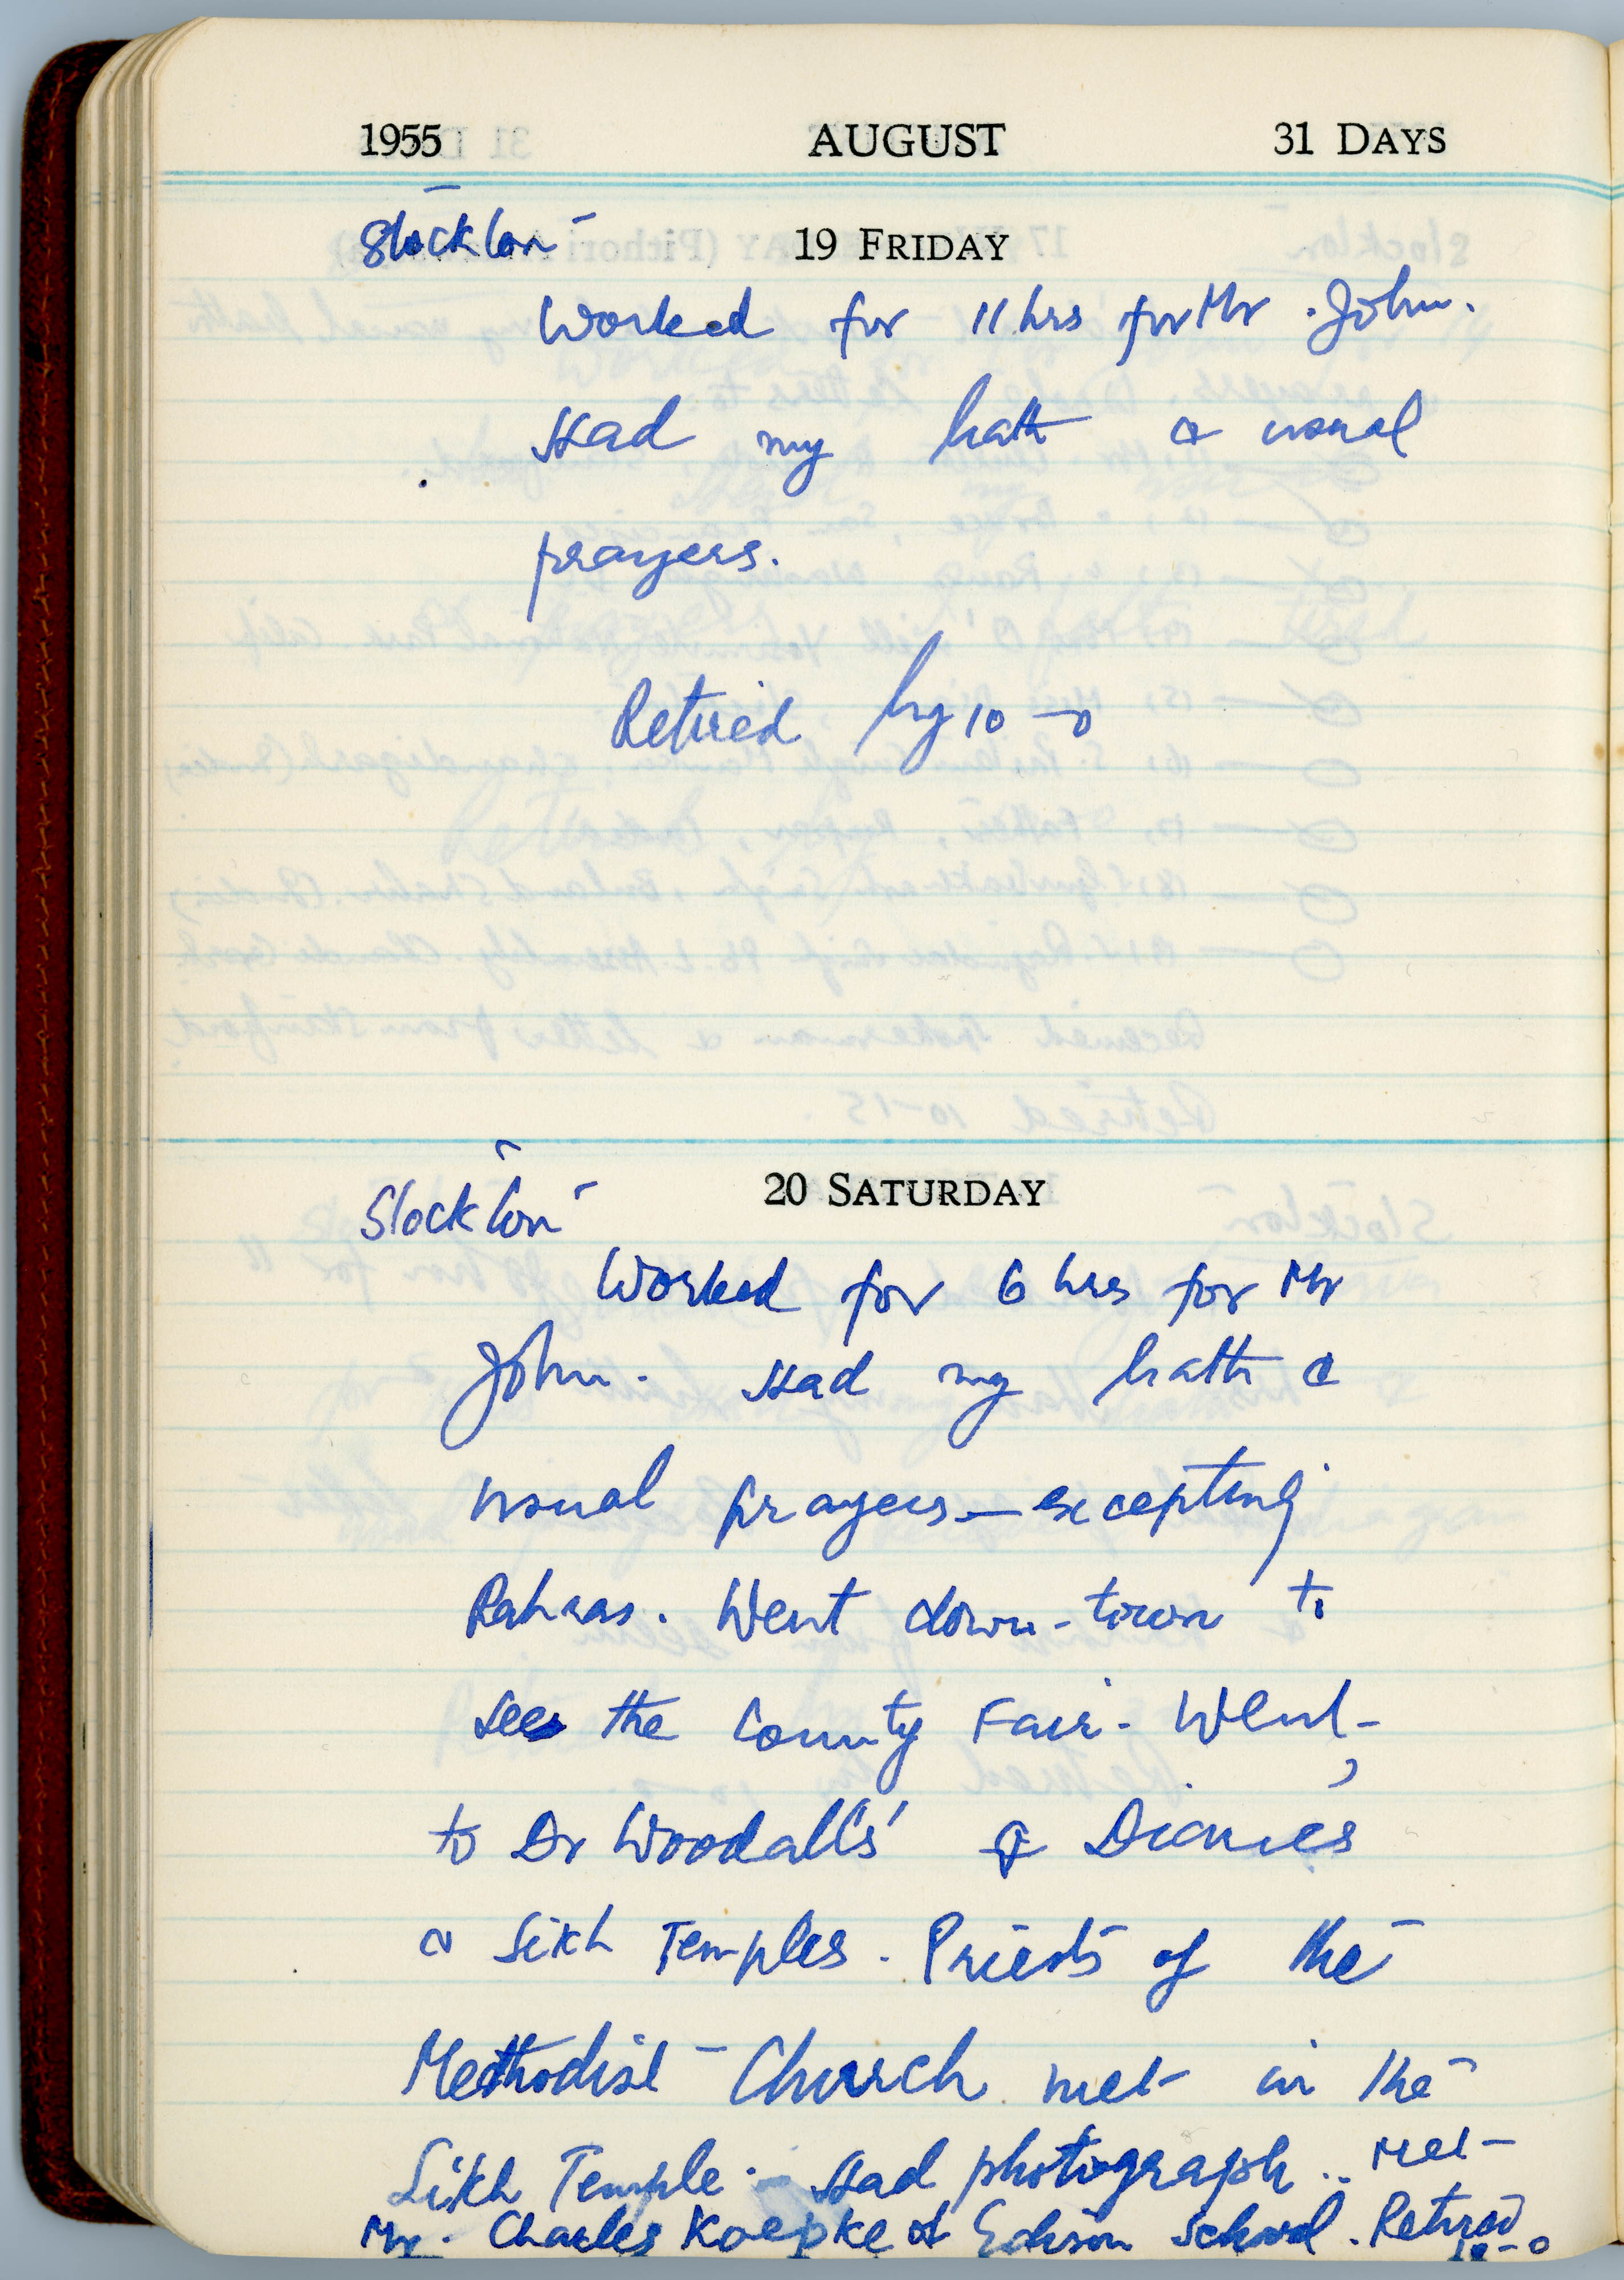 1955 AUGUST 31 DAYS
Stockton 19 FRIDAY
Worked for 11 hrs for Mr. John.
Had my bath & usual
prayers.
Retired by 10-0
Stockton 20 SATURDAY
Worked for 6 hrs for Mr
John. Had my bath &
usual prayers — excepting
Rahras. Went down-town to
see the County Fair. Went
to Dr Woodall's' & Dianes
& Sikh Temples. Priests of the
Methodist Church met in the
Sikh Temple. Had photograph.. Met
Mr. Charles Koepke of Edison School. Retired
10-0